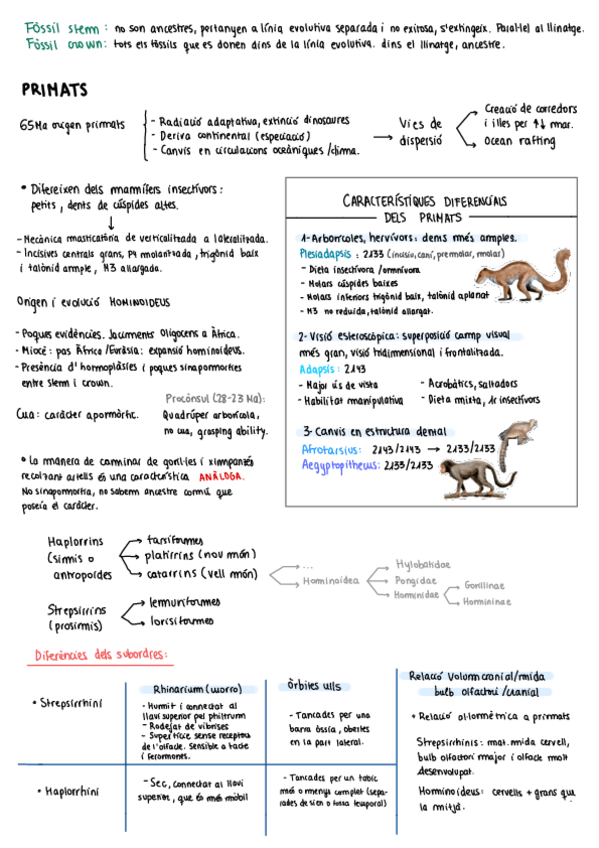 Fóssil stem: no son ancestres, pertanyen a línia evolutiva separada i no exitosa, s'extingeix. Paral·lel al llinatge.
Fòssil crown: tots els fòssils que es donen dins de la línia evolutiva. dins el llinatge, ancestre.
PRIMATS
65Ma origen primats
- Radiació adaptativa, extinció dinosaures
- Deriva continental (especiació)
- Canvis en circulacions oceàniques/clima.
Vies de
dispersió
Creació de corredors
i illes per ↑↓ mar.
Ocean rafting
• Difereixen dels mamífers insectívors:
petits, dents de cúspides altes.
- Mecànica masticatòria de verticalitzada a lateralitzada.
- Incisives centrals grans, P4 molantada, trigònid baix
i talònid ample, M3 allargada.
Origen i evolució HOMINOIDEUS
- Poques evidències. Jaciments Oligocens a Àfrica.
- Miocè: pas Àfrica/Euràsia: expansió hominoideus.
- Presència d'homoplàsies i poques sinapomorfies
entre stem i crown.
Cua: caràcter apomòrfic.
Procònsul (28-23 Ma):
Quadrúper arborícola,
no cua, grasping ability.
• La manera de caminar de goril·les i ximpanzés
recolzant artells és una característica ANÀLOGA.
No sinapomorfia, no sabem ancestre comú que
poseía el caràcter.
CARACTERÍSTIQUES DIFERENCIALS
DELS PRIMATS
1- Arborícoles, hervívors: dents més amples.
Plesiadapsis: 2133 (incisiu, caní, premolar, molar)
- Dieta insectívora/omnívora
- Molars cúspides baixes
- Molars inferiors trigònid baix, talònid aplanat
- M3 no reduïda, talònid allargat.
2- Visió esteroscòpica: superposició camp visual
més gran, visió tridimensional i frontalitzada.
Adapsis: 2143
- Major ús de vista
- Habilitat manipulativa
- Acrobàtics, saltadors
- Dieta mixta, ↓r insectívors
3- Canvis en estructura dental
Afrotarsius: 2143/2143 → 2133/2133
Aegyptopithecus: 2133/2133
Haplorrins
(simis o
antropoides
tarsiformes
platirrins (nou món)
catarrins (vell món)
...
Hominoidea
Hylobatidae
Pongidae
Hominidae
Gorillinae
Homininae
Strepsirrins
(prosimis)
lemuriformes
lorisiformes
Diferències dels subordres:
Rhinarium (morro)
Òrbites ulls
Relació volum cranial/mida
bulb olfactori/cranial
• Strepsirrhini
- Humit i connectat al
llavi superior pel philtrum
- Rodejat de vibrises
- Superfície sense receptou
de l'olfacte. sensible a tacte
i feromones.
- Tancades per una
barra òssia, obertes
en la part lateral.
• Relació al·lomètrica a primats
Strepsirrhinis: mat. mida cervell,
bulb olfactori major i olfacte molt
desenvolupat.
Hominoideus: cervells + grans que
la mitjà.
• Haplorrhini
- Sec, connectat al llavi
superior, que és més mòbil
- Tancades per un tabic
més o menys complet (sepa-
rades de sien o fossa temporal)